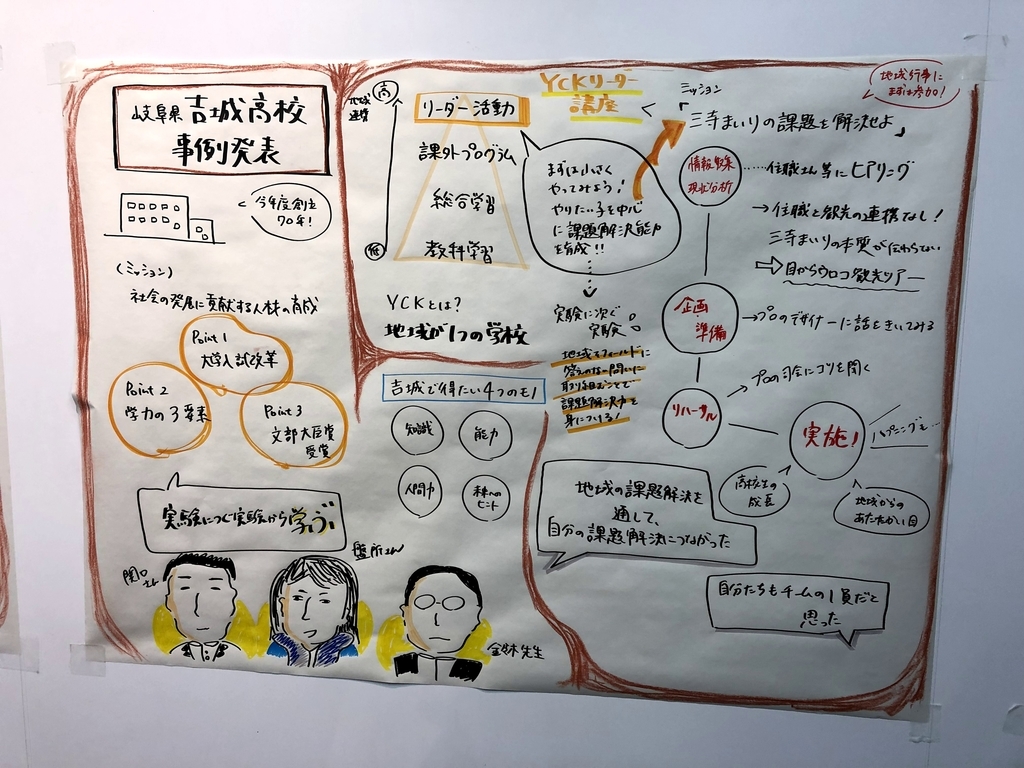 岐阜県 吉城高校
事例発表
今年度創立
70年!
(ミッション)
社会の発展に貢献する人材の育成
Point 1
大学入試改革
Point 2
学力の3要素
Point 3
文部大臣賞
受賞
実験につぐ実験から学ぶ
関口さん
盤所さん
先生
地域
連携
高
低
リーダー活動
課外プログラム
総合学習
教科学習
YCKとは?
地域が1つの学校
吉城で得たい4つのもの
知識
能力
人間力
未来への
ヒント
YCKリーダー
講座
まずは小さく
やってみよう!
やりたい子を中心
に課題解決能力
を育成!!
実験に次ぐ
実験。
地域をフィールドに
答えのない問いに
取り組むことで
課題解決力を
身につける!
地域の課題解決を
通して、
自分の課題解決につながった
ミッション
「三寺まいりの課題を解決せよ」
地域行事に
まずは参加!
情報収集
現状分析
住職さん等にヒアリング
→住職と観光の連携なし!
三寺まいりの本質が伝わらない
⇒目からウロコ観光ツアー
企画
準備
→プロのデザイナーに話をきいてみる
リハーサル
→プロの司会にコツを聞く
実施!
ハプニングも…
高校生の
成長
地域からの
あたたかい目
自分たちもチームの1員だと
思った